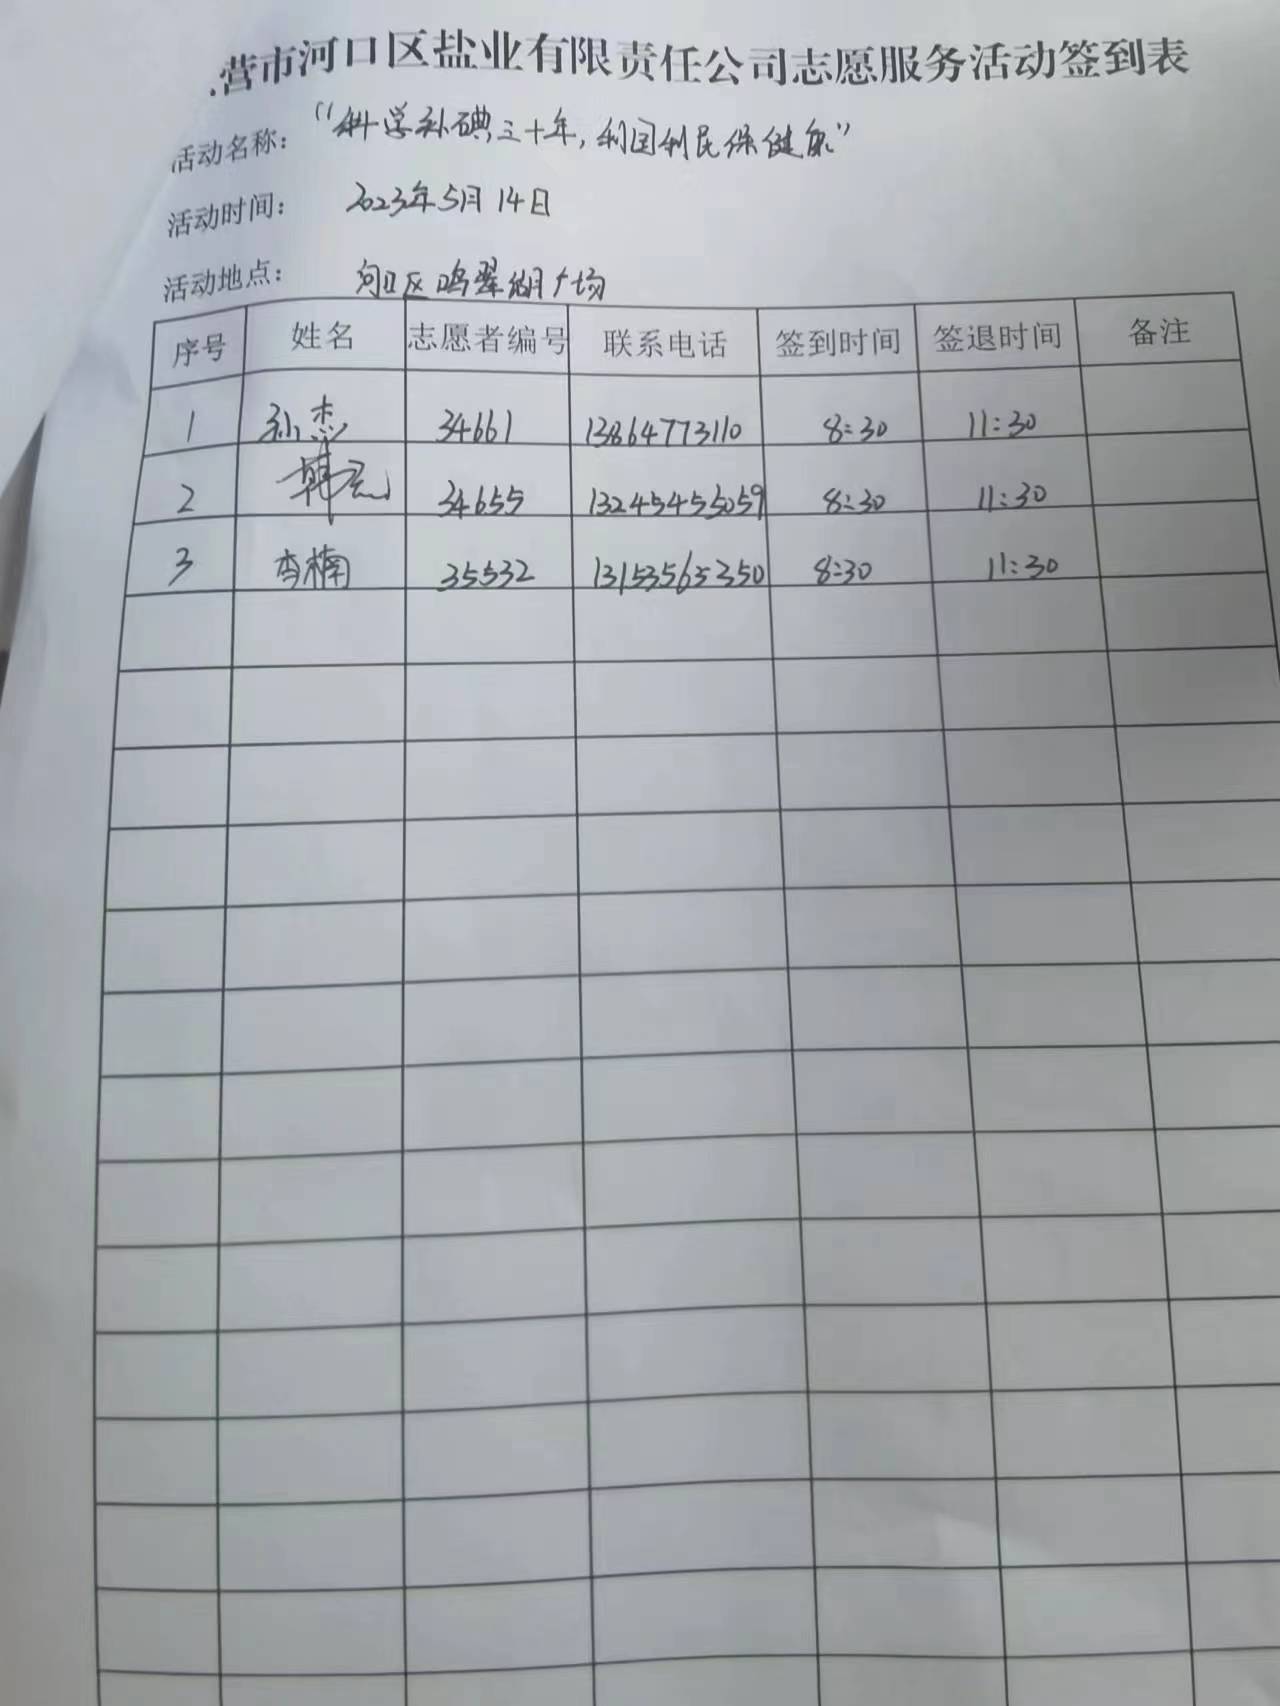 营市河口区盐业有限责任公司志愿服务活动签到表
活动名称: “科学补碘三十年,利国利民保健康”
活动时间: 2023年5月14日
活动地点: 河口区鸣翠湖广场
序号 姓名 志愿者编号 联系电话 签到时间 签退时间 备注
1 孙杰 34661 13864773110 8:30 11:30
2 韩 34655 13245455059 8:30 11:30
3 李楠 35532 13153565350 8:30 11:30